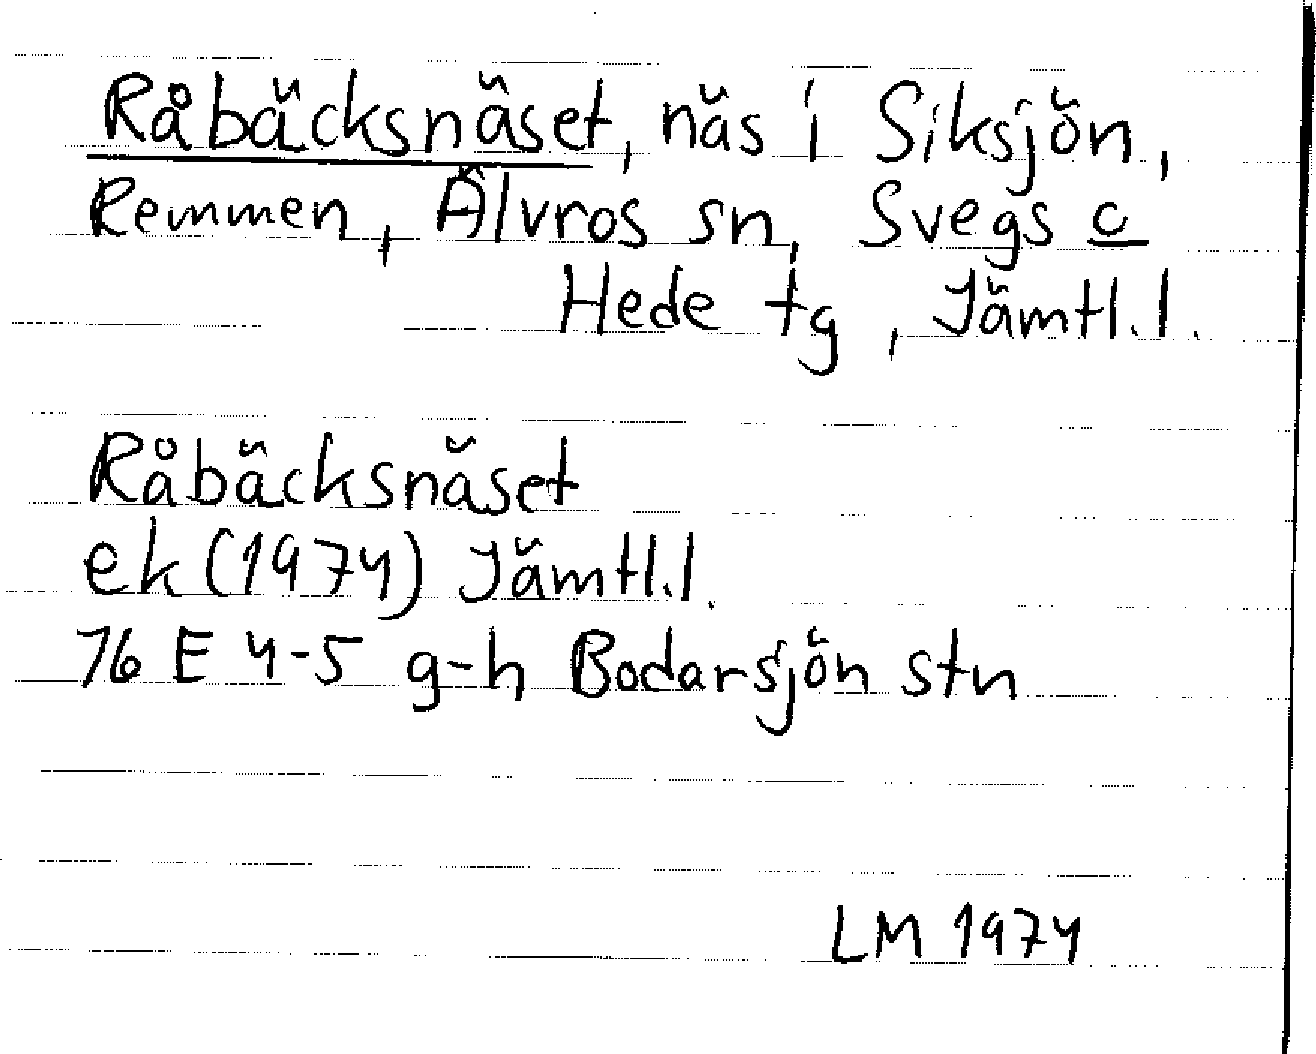 Råbäcksnäset, näs i Siksjön,
Remmen, Älvros sn, Svegs o
Hede tg, Jämtl.l.
Råbäcksnäset
ek (1974) Jämtl.l.
16 E 4-5 g-h Bodarsjön stn
LM 1974